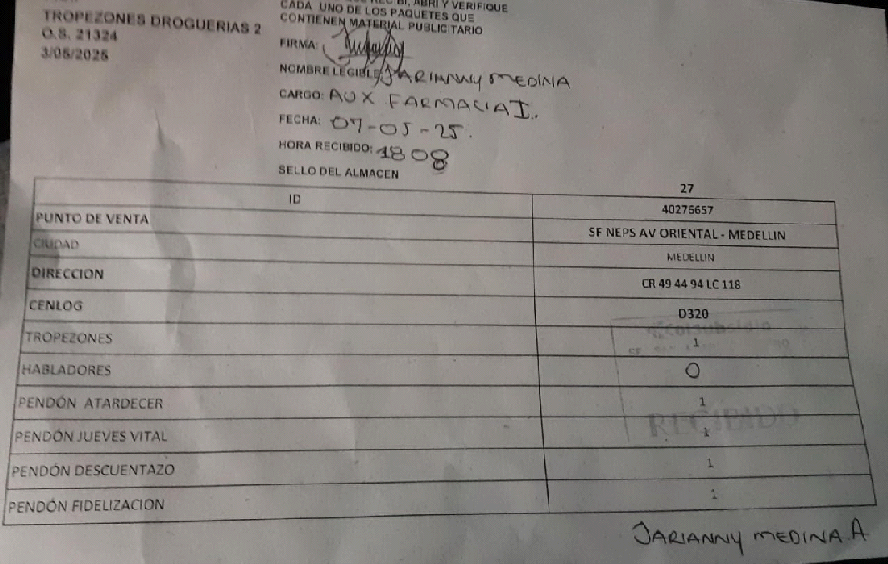 TROPEZONES DROGUERIAS 2
O.S. 21324
3/05/2025
ABRI Y VERIFIQUE
CADA UNO DE LOS PAQUETES QUE
CONTIENEN MATERIAL PUBLICITARIO
FIRMA:
NOMBRE LEGIBLE: JARIANNY MEDINA
CARGO: AUX FARMACIA I.
FECHA: 07-05-25.
HORA RECIBIDO: 1808
SELLO DEL ALMACEN
27
ID 40275657
PUNTO DE VENTA SF NEPS AV ORIENTAL - MEDELLIN
CIUDAD MEDELLIN
DIRECCION CR 49 44 94 LC 118
CENLOG D320
TROPEZONES 1
HABLADORES 0
PENDÓN ATARDECER 1
PENDÓN JUEVES VITAL 1
PENDÓN DESCUENTAZO 1
PENDÓN FIDELIZACION 1
Colsubsidio
RECIBIDO
JARIANNY MEDINA A.